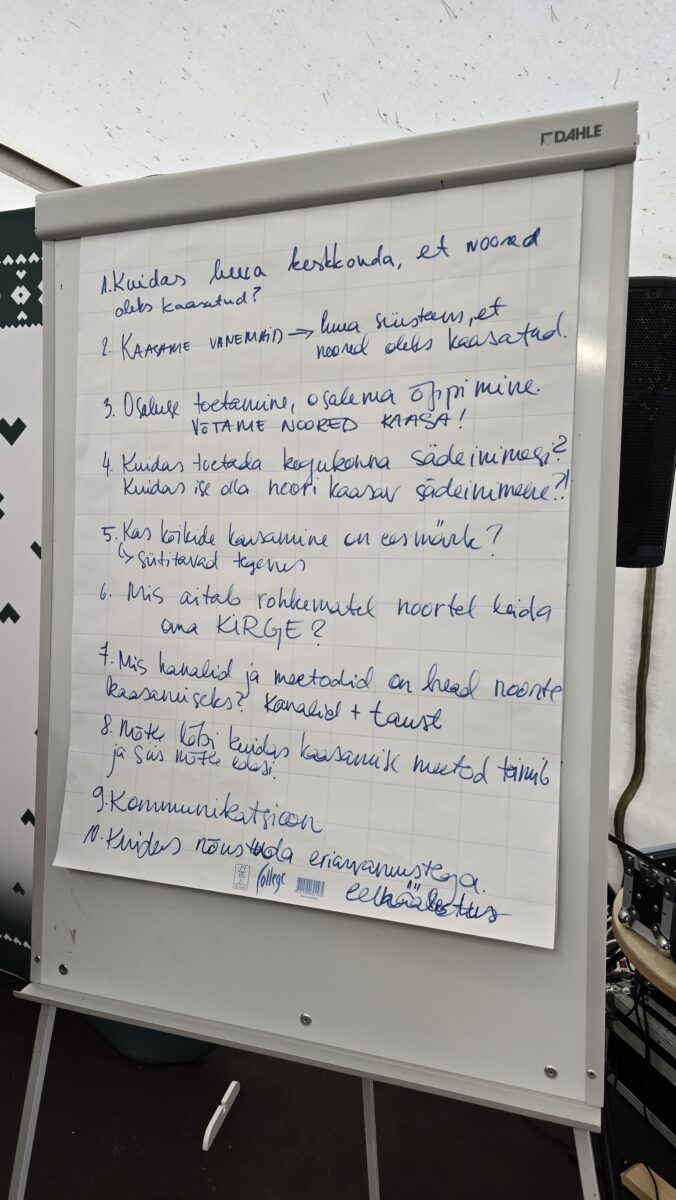 DAHLE
1. Kuidas luua keskkonda, et noored
oleks kaasatud?
2. KAASAME VANEMAID → luua süsteem, et
noored oleks kaasatud.
3. Osaluse toetamine, osalema õppimine.
VÕTAME NOORED KAASA!
4. Kuidas toetada kogukonna sädeinimesi?
Kuidas ise olla noori kaasav sädeinimene?!
5. Kas kõikide kaasamine on eesmärk?
↳ sütitavad tegevus
6. Mis aitab rohkematel noortel leida
oma KIRGE?
7. Mis kanalid ja meetodid on head noorte
kaasamiseks? Kanalid + taust
8. Mõtle läbi kuidas kaasamise meetod toimib
ja siis mõtle edasi.
9. Kommunikatsioon
10. Kuidas nõustada eriarvamustega.
College
eelhäälestus